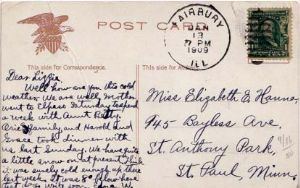 POST CARD
FAIRBURY
JAN
13
7 PM
1909
ILL
This side for Correspondence.
This side for Address.
Dear
Well how are you this cold
weather. We are well. We
went to Saturday to spend
a week with Aunt
family and Harold and
Grace took dinner with
us last Sunday. We have
a little snow on at present
it was surely cold enough up there
last week. It was below
Miss Elizabeth E.
945 Bayless Ave
St. Anthony Park,
St. Paul, Minn.